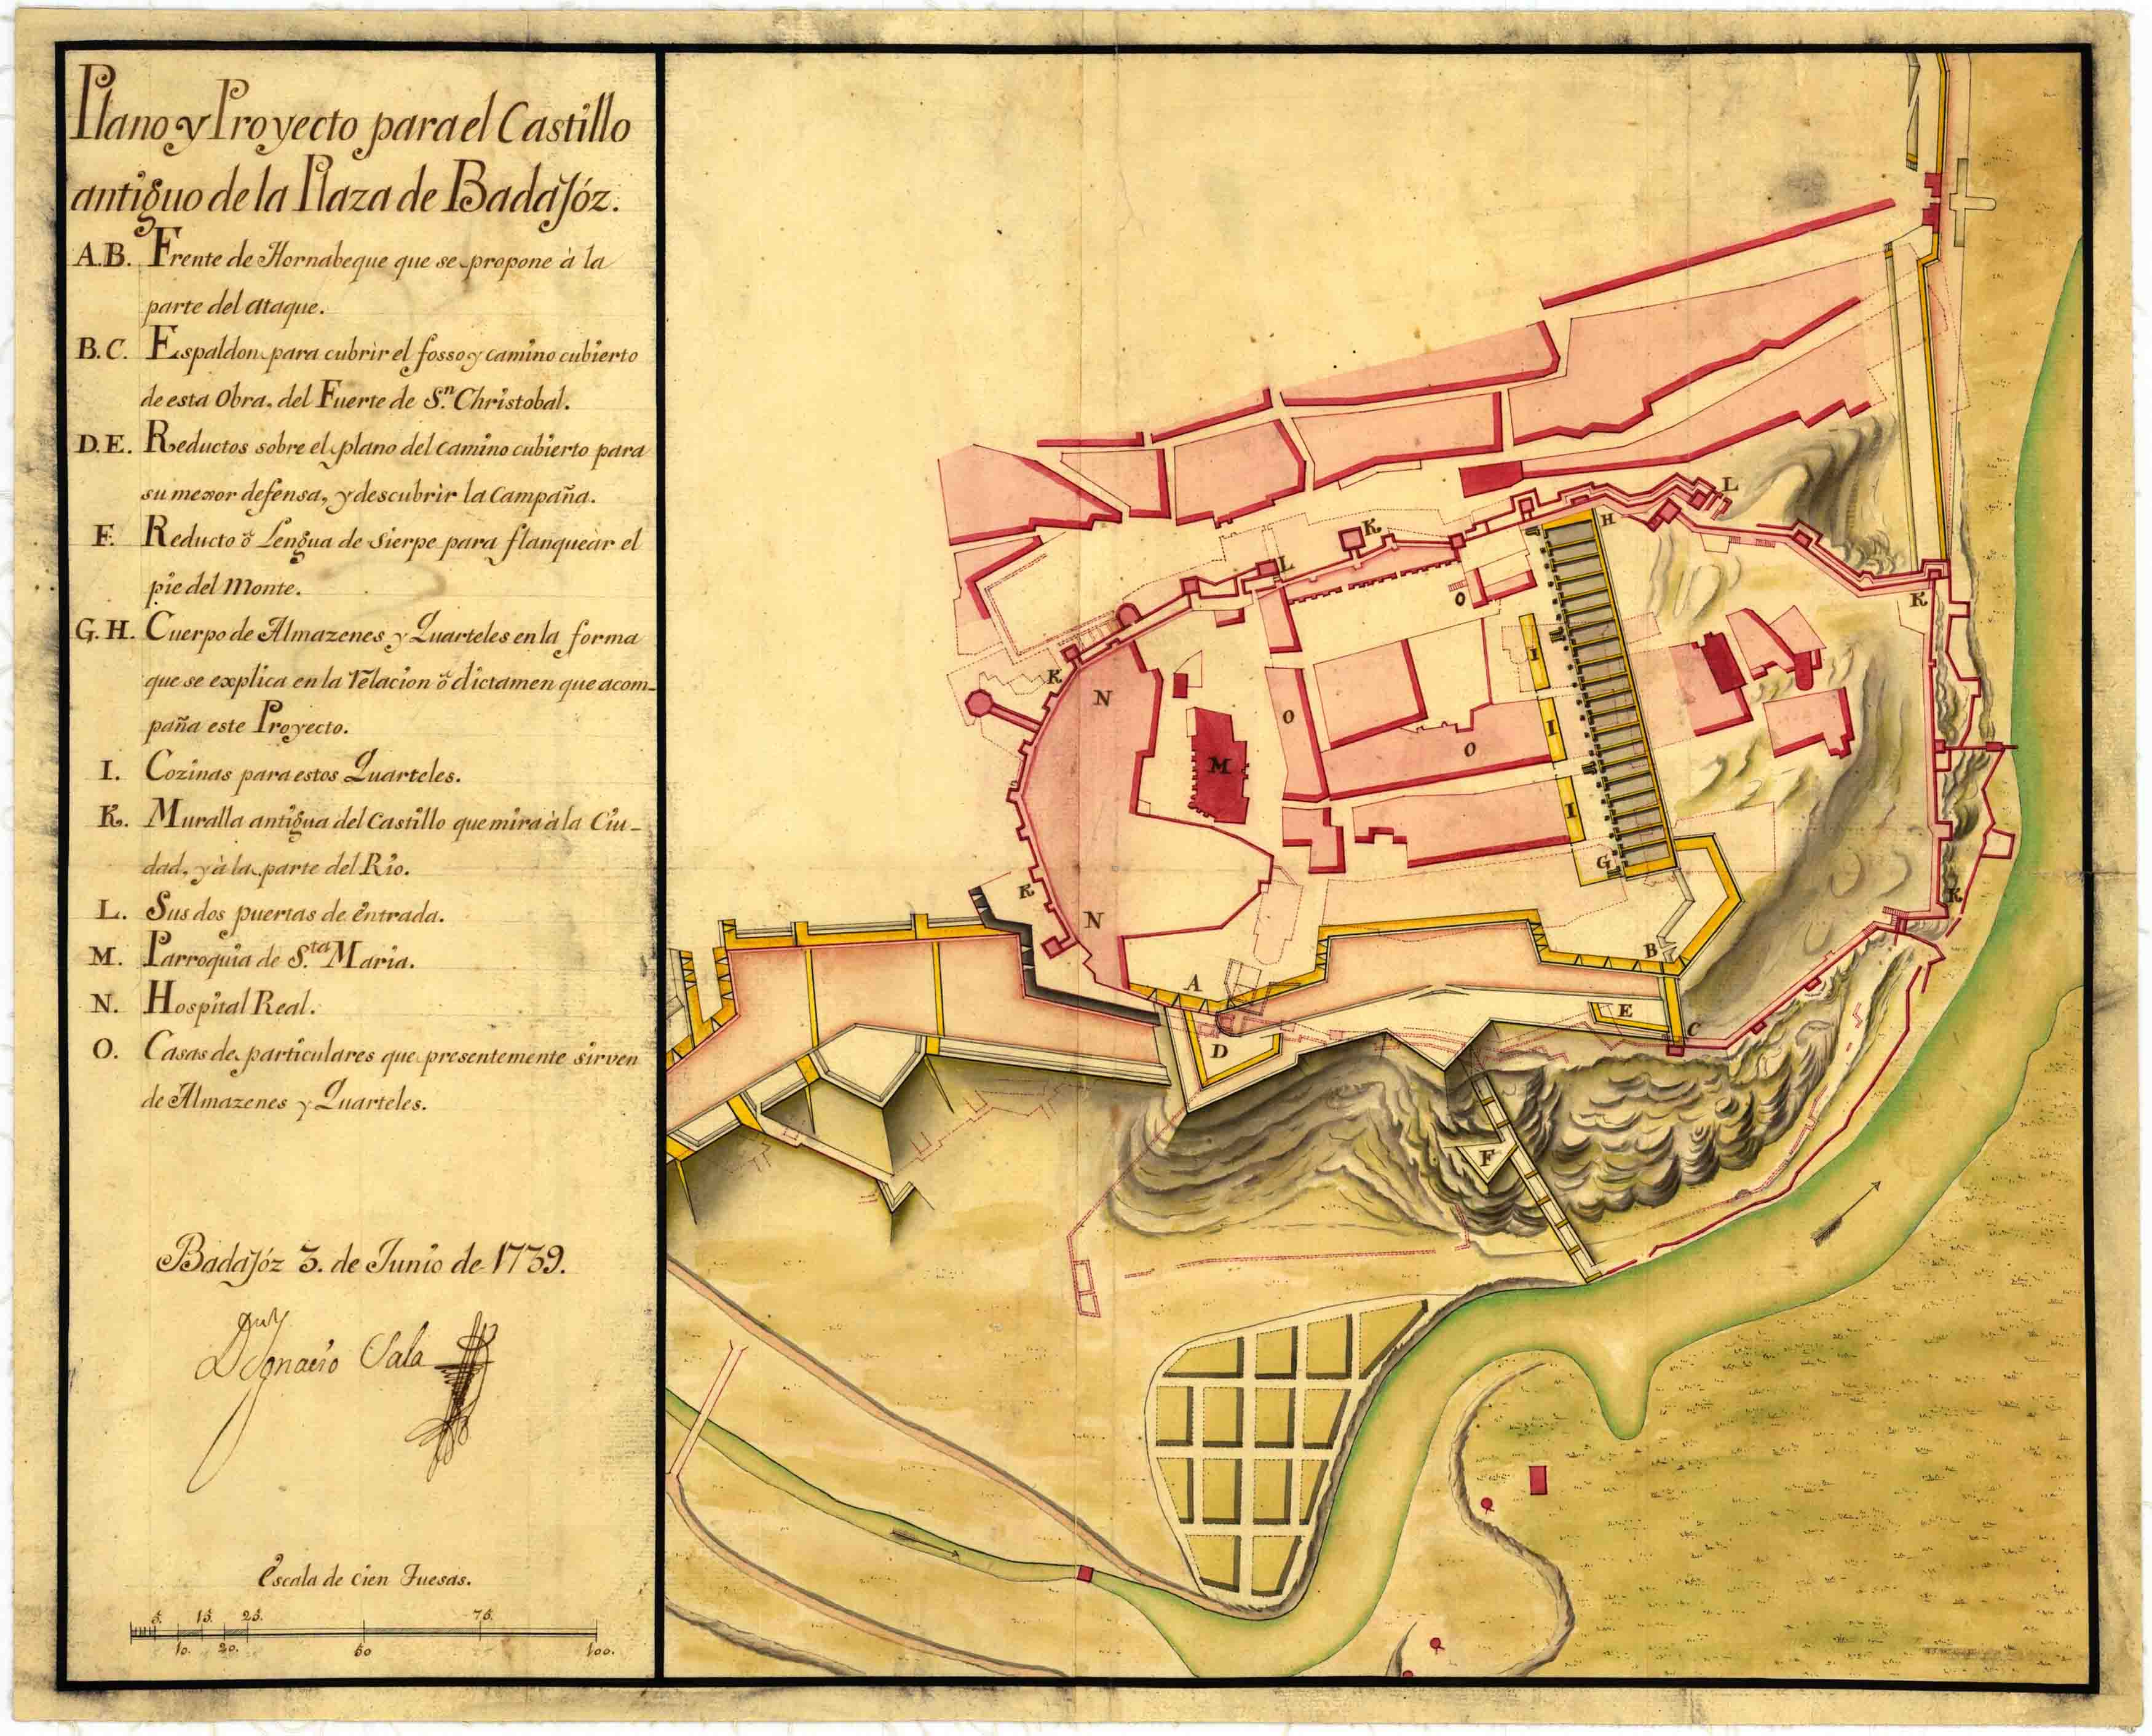 Plano y Proyecto para el Castillo
antiguo de la Plaza de Badajóz.
A.B. Frente de Hornabeque que se propone à la
parte del ataque.
B.C. Espaldon para cubrir el fosso y camino cubierto
de esta Obra, del Fuerte de S.n Christobal.
D.E. Reductos sobre el plano del camino cubierto para
su mexor defensa, y descubrir la Campaña.
F. Reducto ò Lengua de Sierpe para flanqueàr el
pie del Monte.
G.H. Cuerpo de Almazenes y Quarteles en la forma
que se explica en la Relacion ò dictamen que acom-
paña este Proyecto.
I. Cozinas para estos Quarteles.
K. Muralla antigua del Castillo que mira à la Ciu-
dad, y à la parte del Rio.
L. Sus dos puertas de entrada.
M. Parroquia de S.ta Maria.
N. Hospital Real.
O. Casas de particulares que presentemente sirven
de Almazenes y Quarteles.
Badajóz 3. de Junio de 1739.
Dn Ignacio Sala
Escala de cien Tuesas.
5. 15. 25. 75.
10. 20. 50 100.
L
K
H
L
O
K
K
N
I
O
I
O
M
I
G
K
K
N
B
A
E
C
D
F